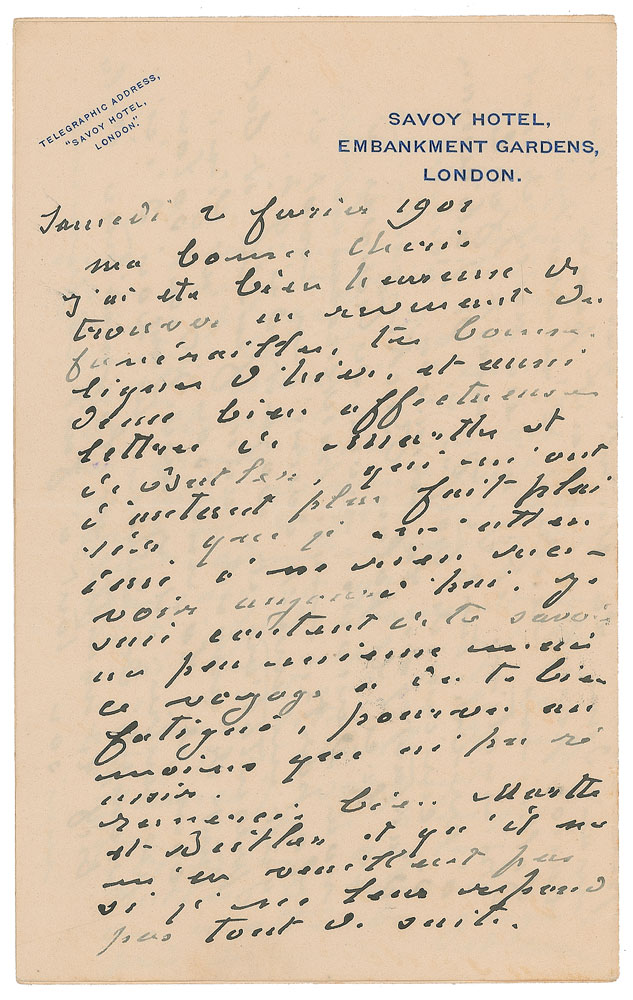 TELEGRAPHIC ADDRESS,
"SAVOY HOTEL,
LONDON."
SAVOY HOTEL,
EMBANKMENT GARDENS,
LONDON.
Samedi 2 fevrier 1901
ma bonne cherie
j'ai ete bien heureuse de
trouver en revenant des
funérailles, tes bonnes
lignes d'hier, et aussi
deux bien affectueuses
lettres de Marthe et
de Butler, qui m'ont
d'autant plus fait plai
sir que je m'atten
dais a ne rien rece-
voir aujourd'hui. Je
suis content de te savoir
un peu mieux mais
ce voyage a du te bien
fatigué, pourvu au
moins que ai pu ré
ussir.
remercie bien Marthe
et Butler et qu'il ne
m'en veuillent pas
si je ne leur repond
pas tout de suite.